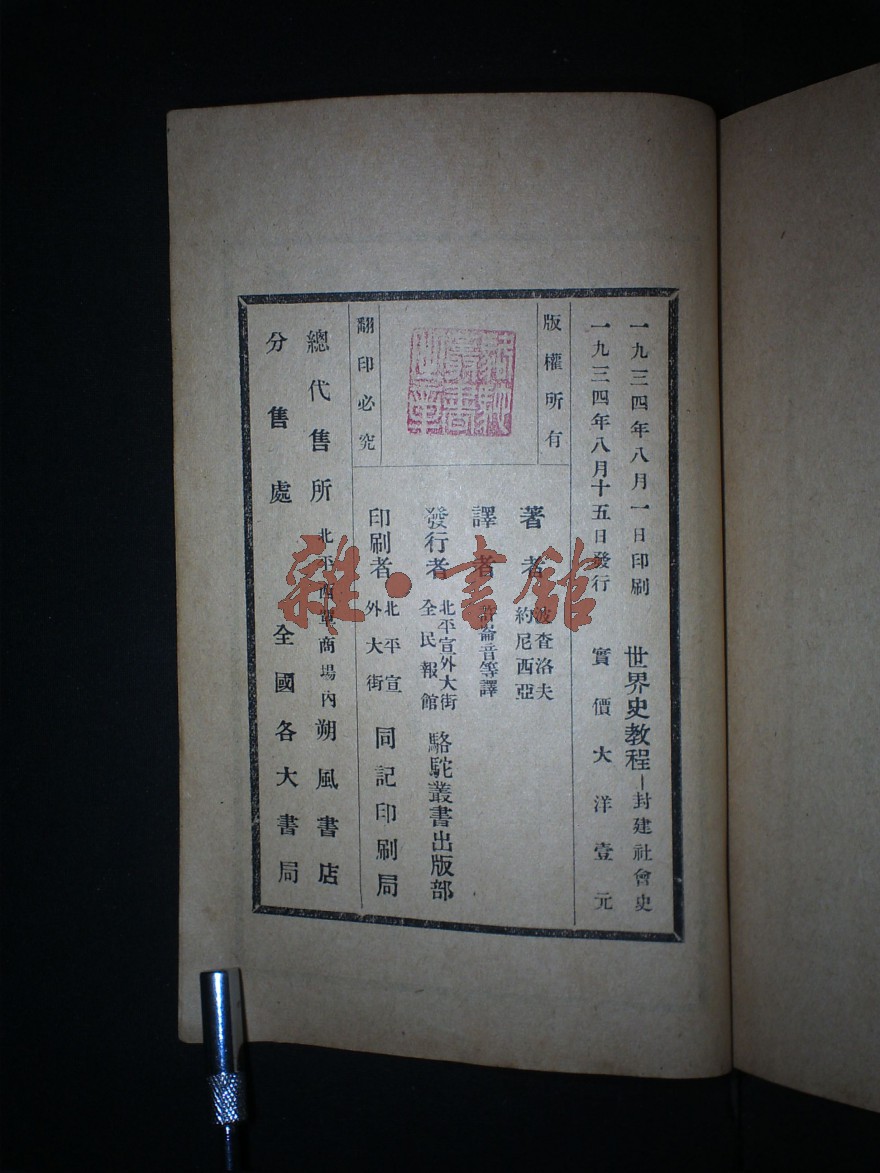 一九三四年八月一日印刷
世界史教程—封建社會史
一九三四年八月十五日發行
實價大洋壹元
版權所有
翻印必究
著者
波查洛夫
約尼西亞
譯者
許崙音等譯
發行者
北平宣外大街
全民報館
駱駝叢書出版部
印刷者
北平宣
外大街
同記印刷局
總代售所
北平西單商場內
朔風書店
分售處
全國各大書局
雜·書館